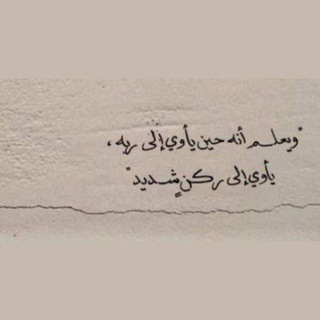 "ويعلم أنه حين يأوي إلى ربه،
يأوي إلى ركنٍ شديد"